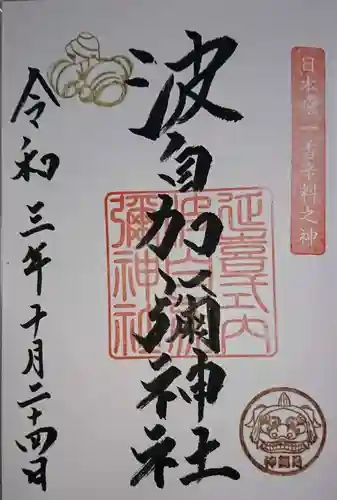 日本唯一香辛料之神
延喜式内
波自加
彌神社
波自加彌神社
令和三年十月二十四日